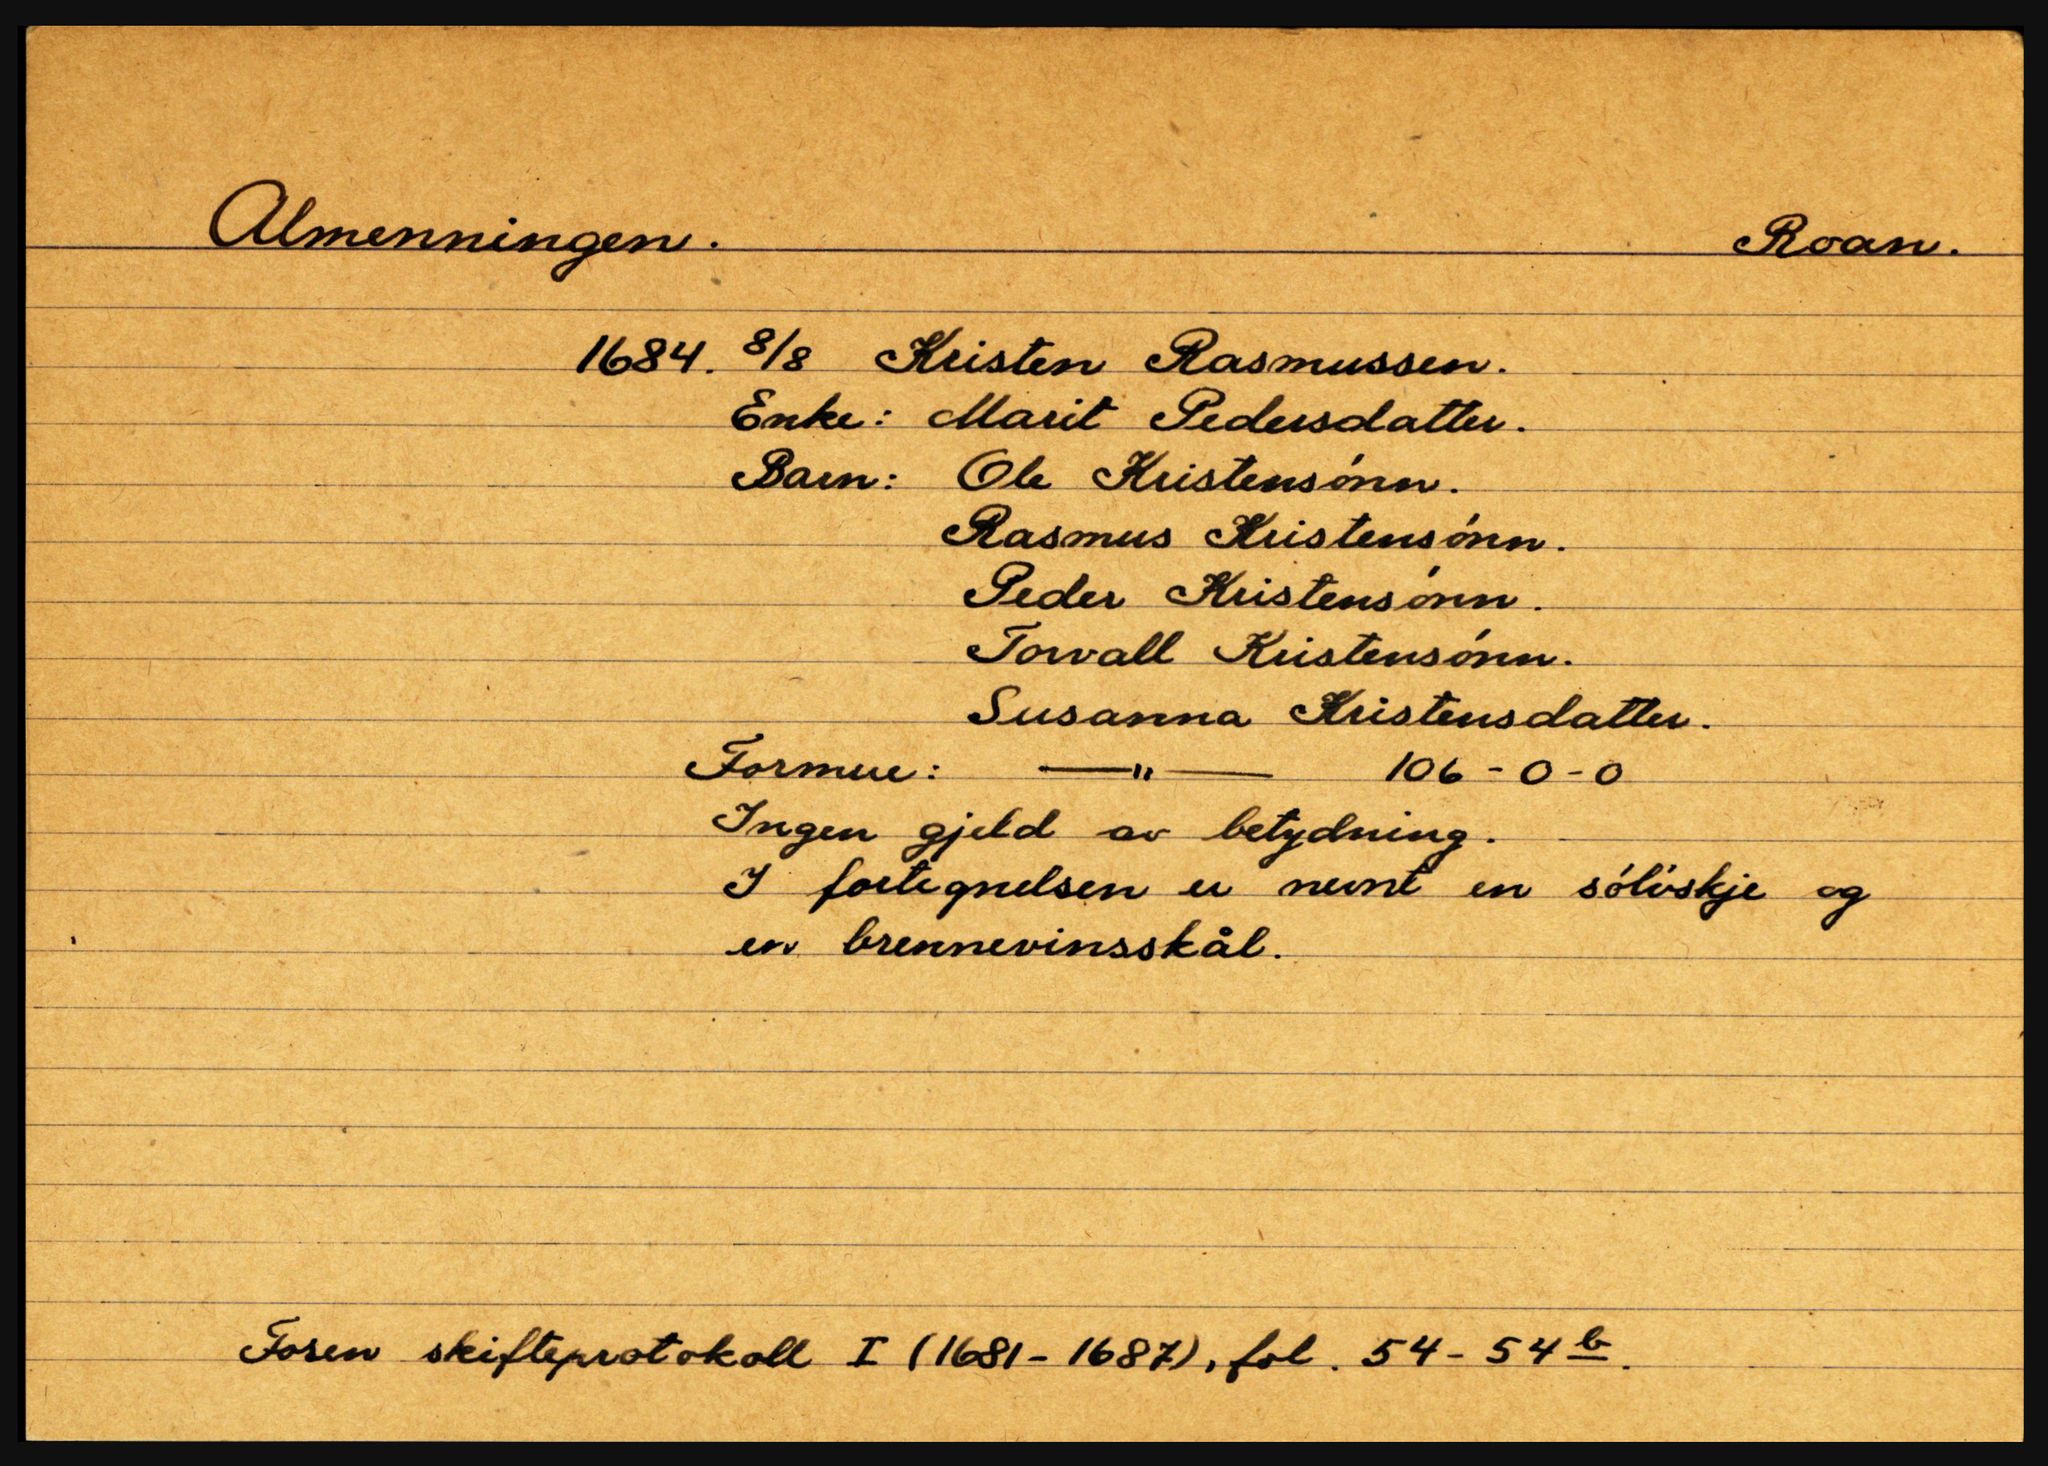 Almenningen. Roan.
1684. 8/8 Kristen Rasmussen.
Enke: Marit Pedersdatter.
Barn: Ole Kristensónn.
Rasmus Kristensónn.
Peder Kristensónn.
Torvall Kristensónn.
Susanna Kristensdatter.
Formue: —"— 106-0-0
Ingen gjeld av betydning.
I fortegnelsen er nevnt en sólvskje og
en brennevinsskål.
Fosen skifteprotokoll I (1681-1687), fol. 54-54b.